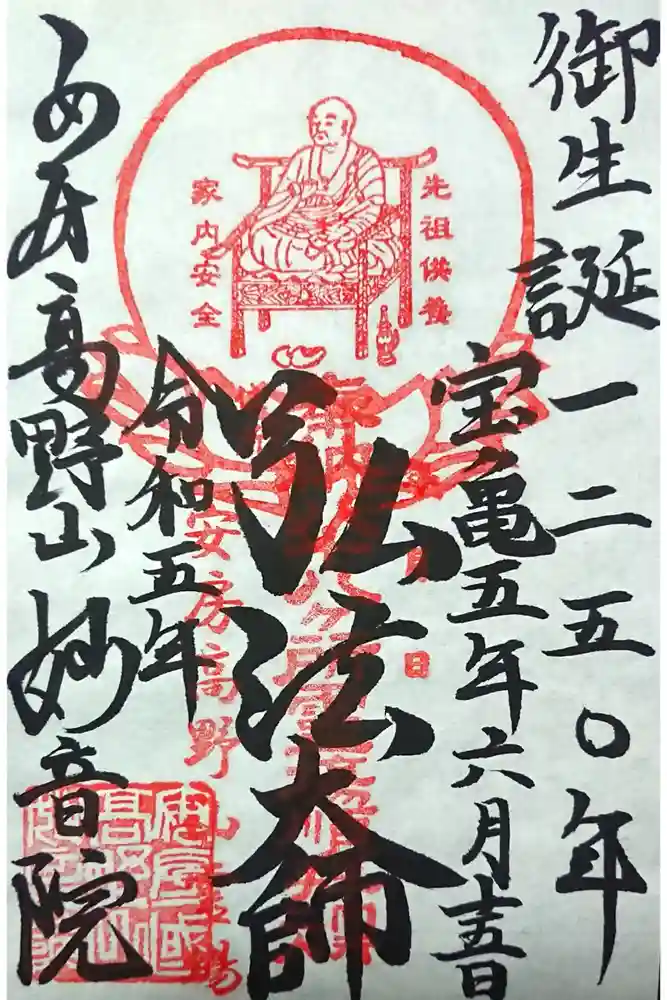 御生誕一二五〇年
宝亀五年六月十五日
先祖供養
家内安全
弘法大師
日
令和五年
安房高野
安房高野山妙音院